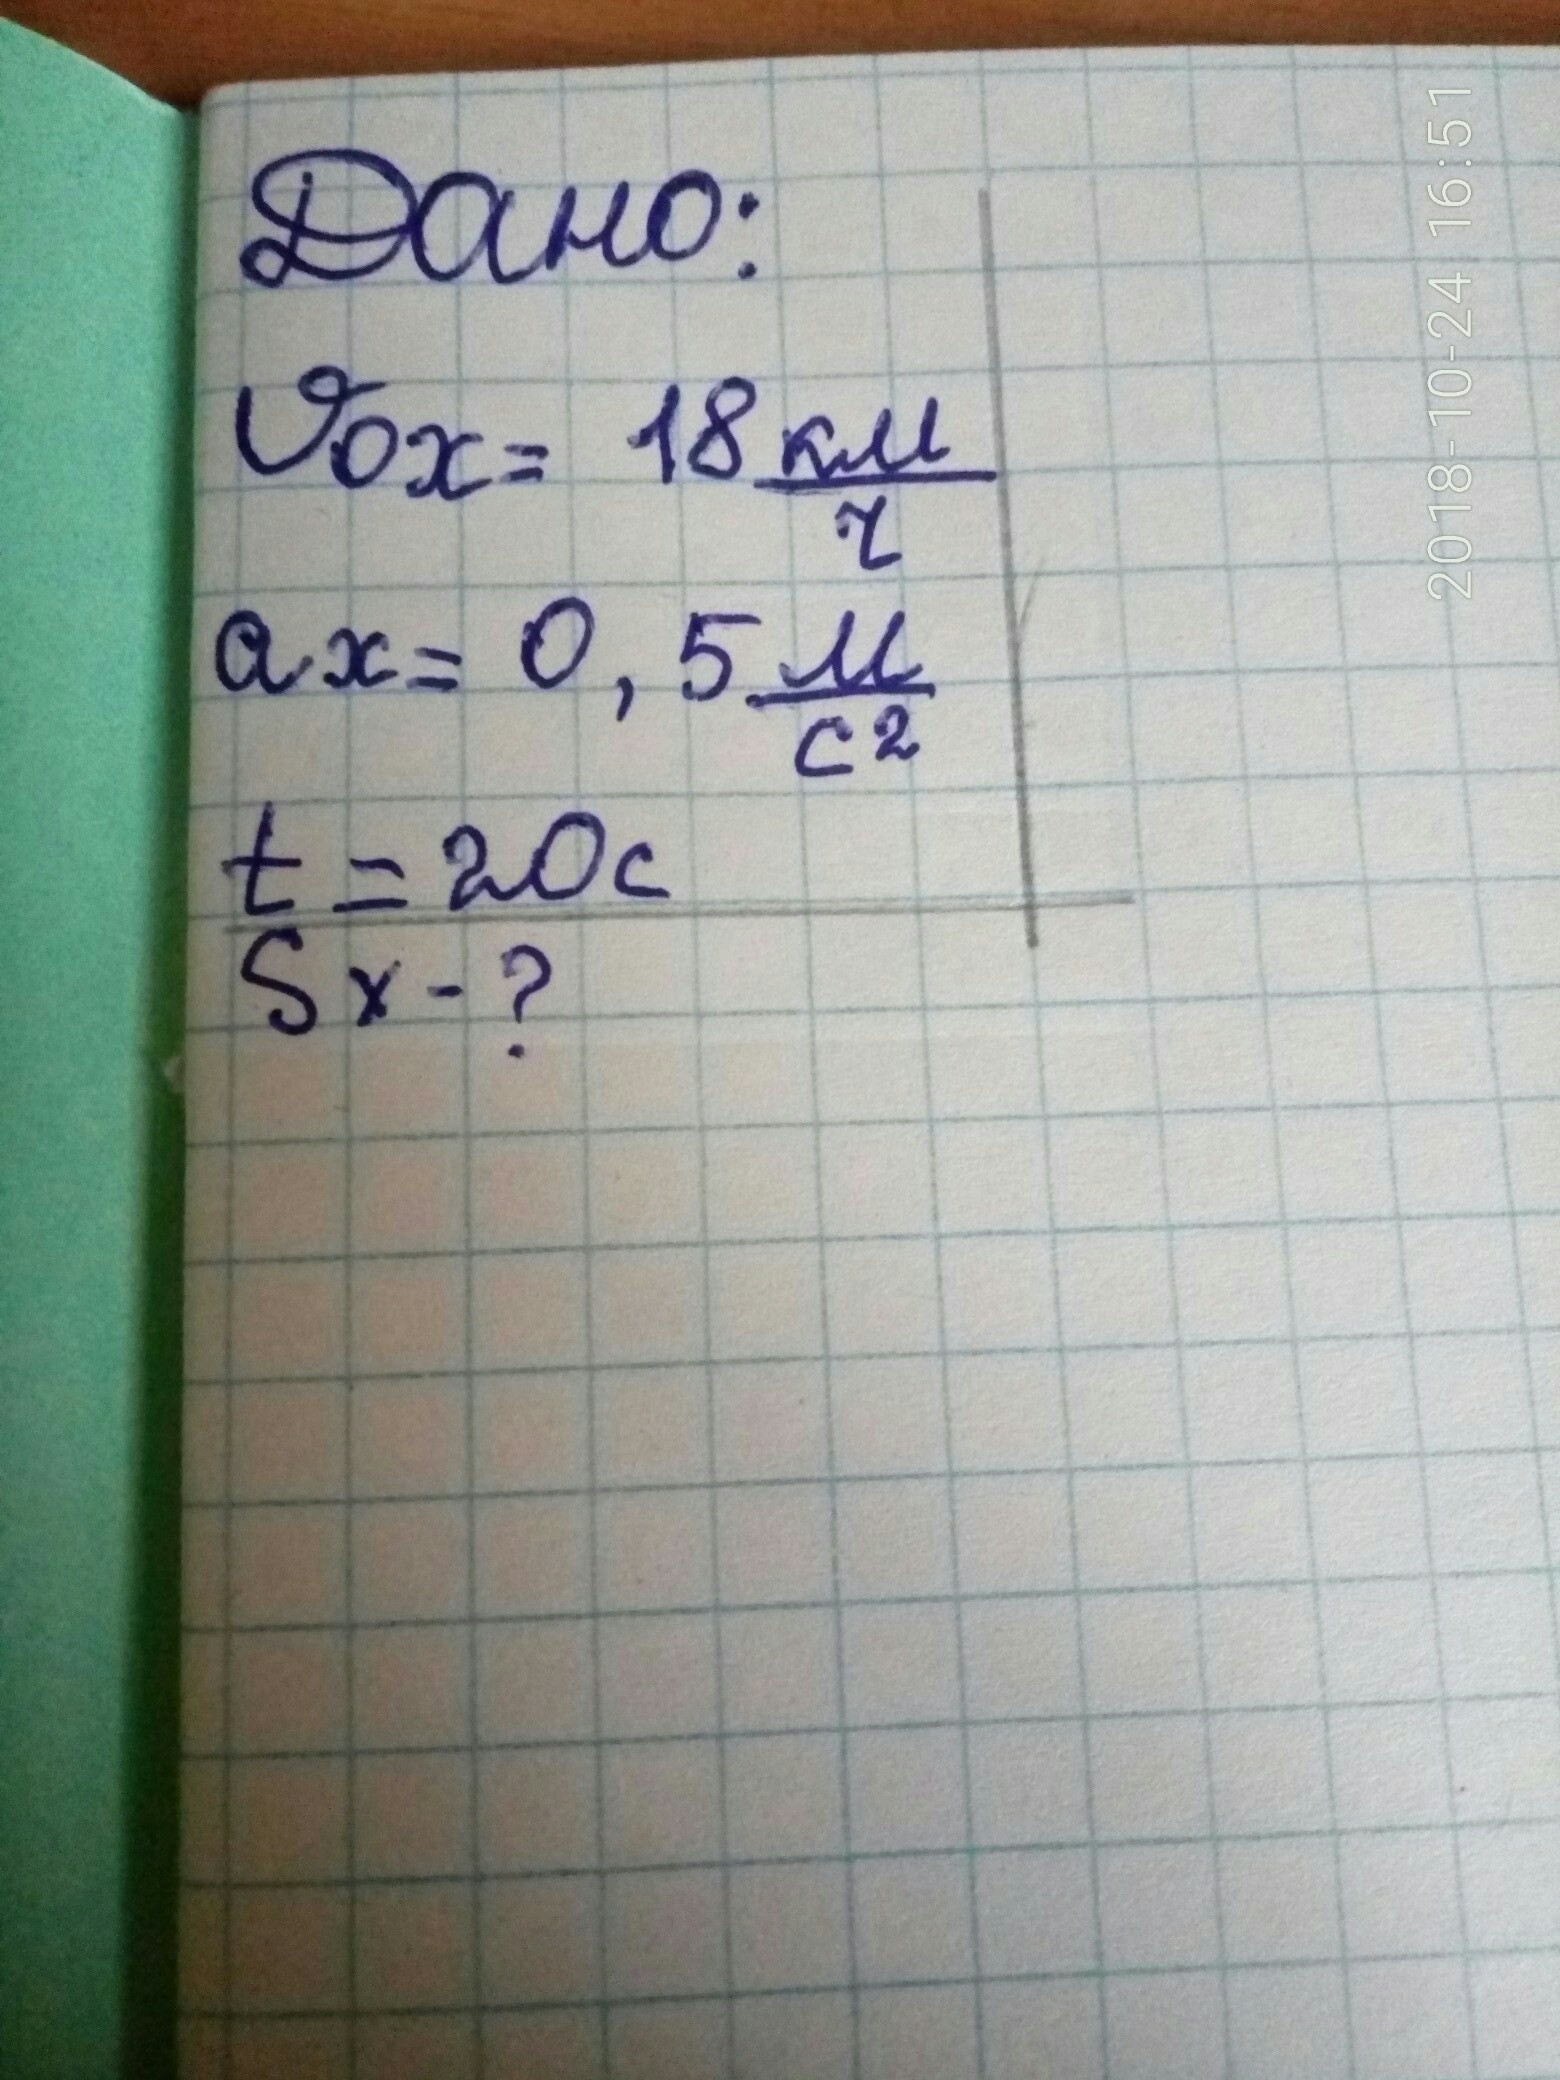 Дано:
v0x = 18 км/ч
ax = 0,5 м/с²
t = 20с
Sx - ?
2018-10-24 16:51